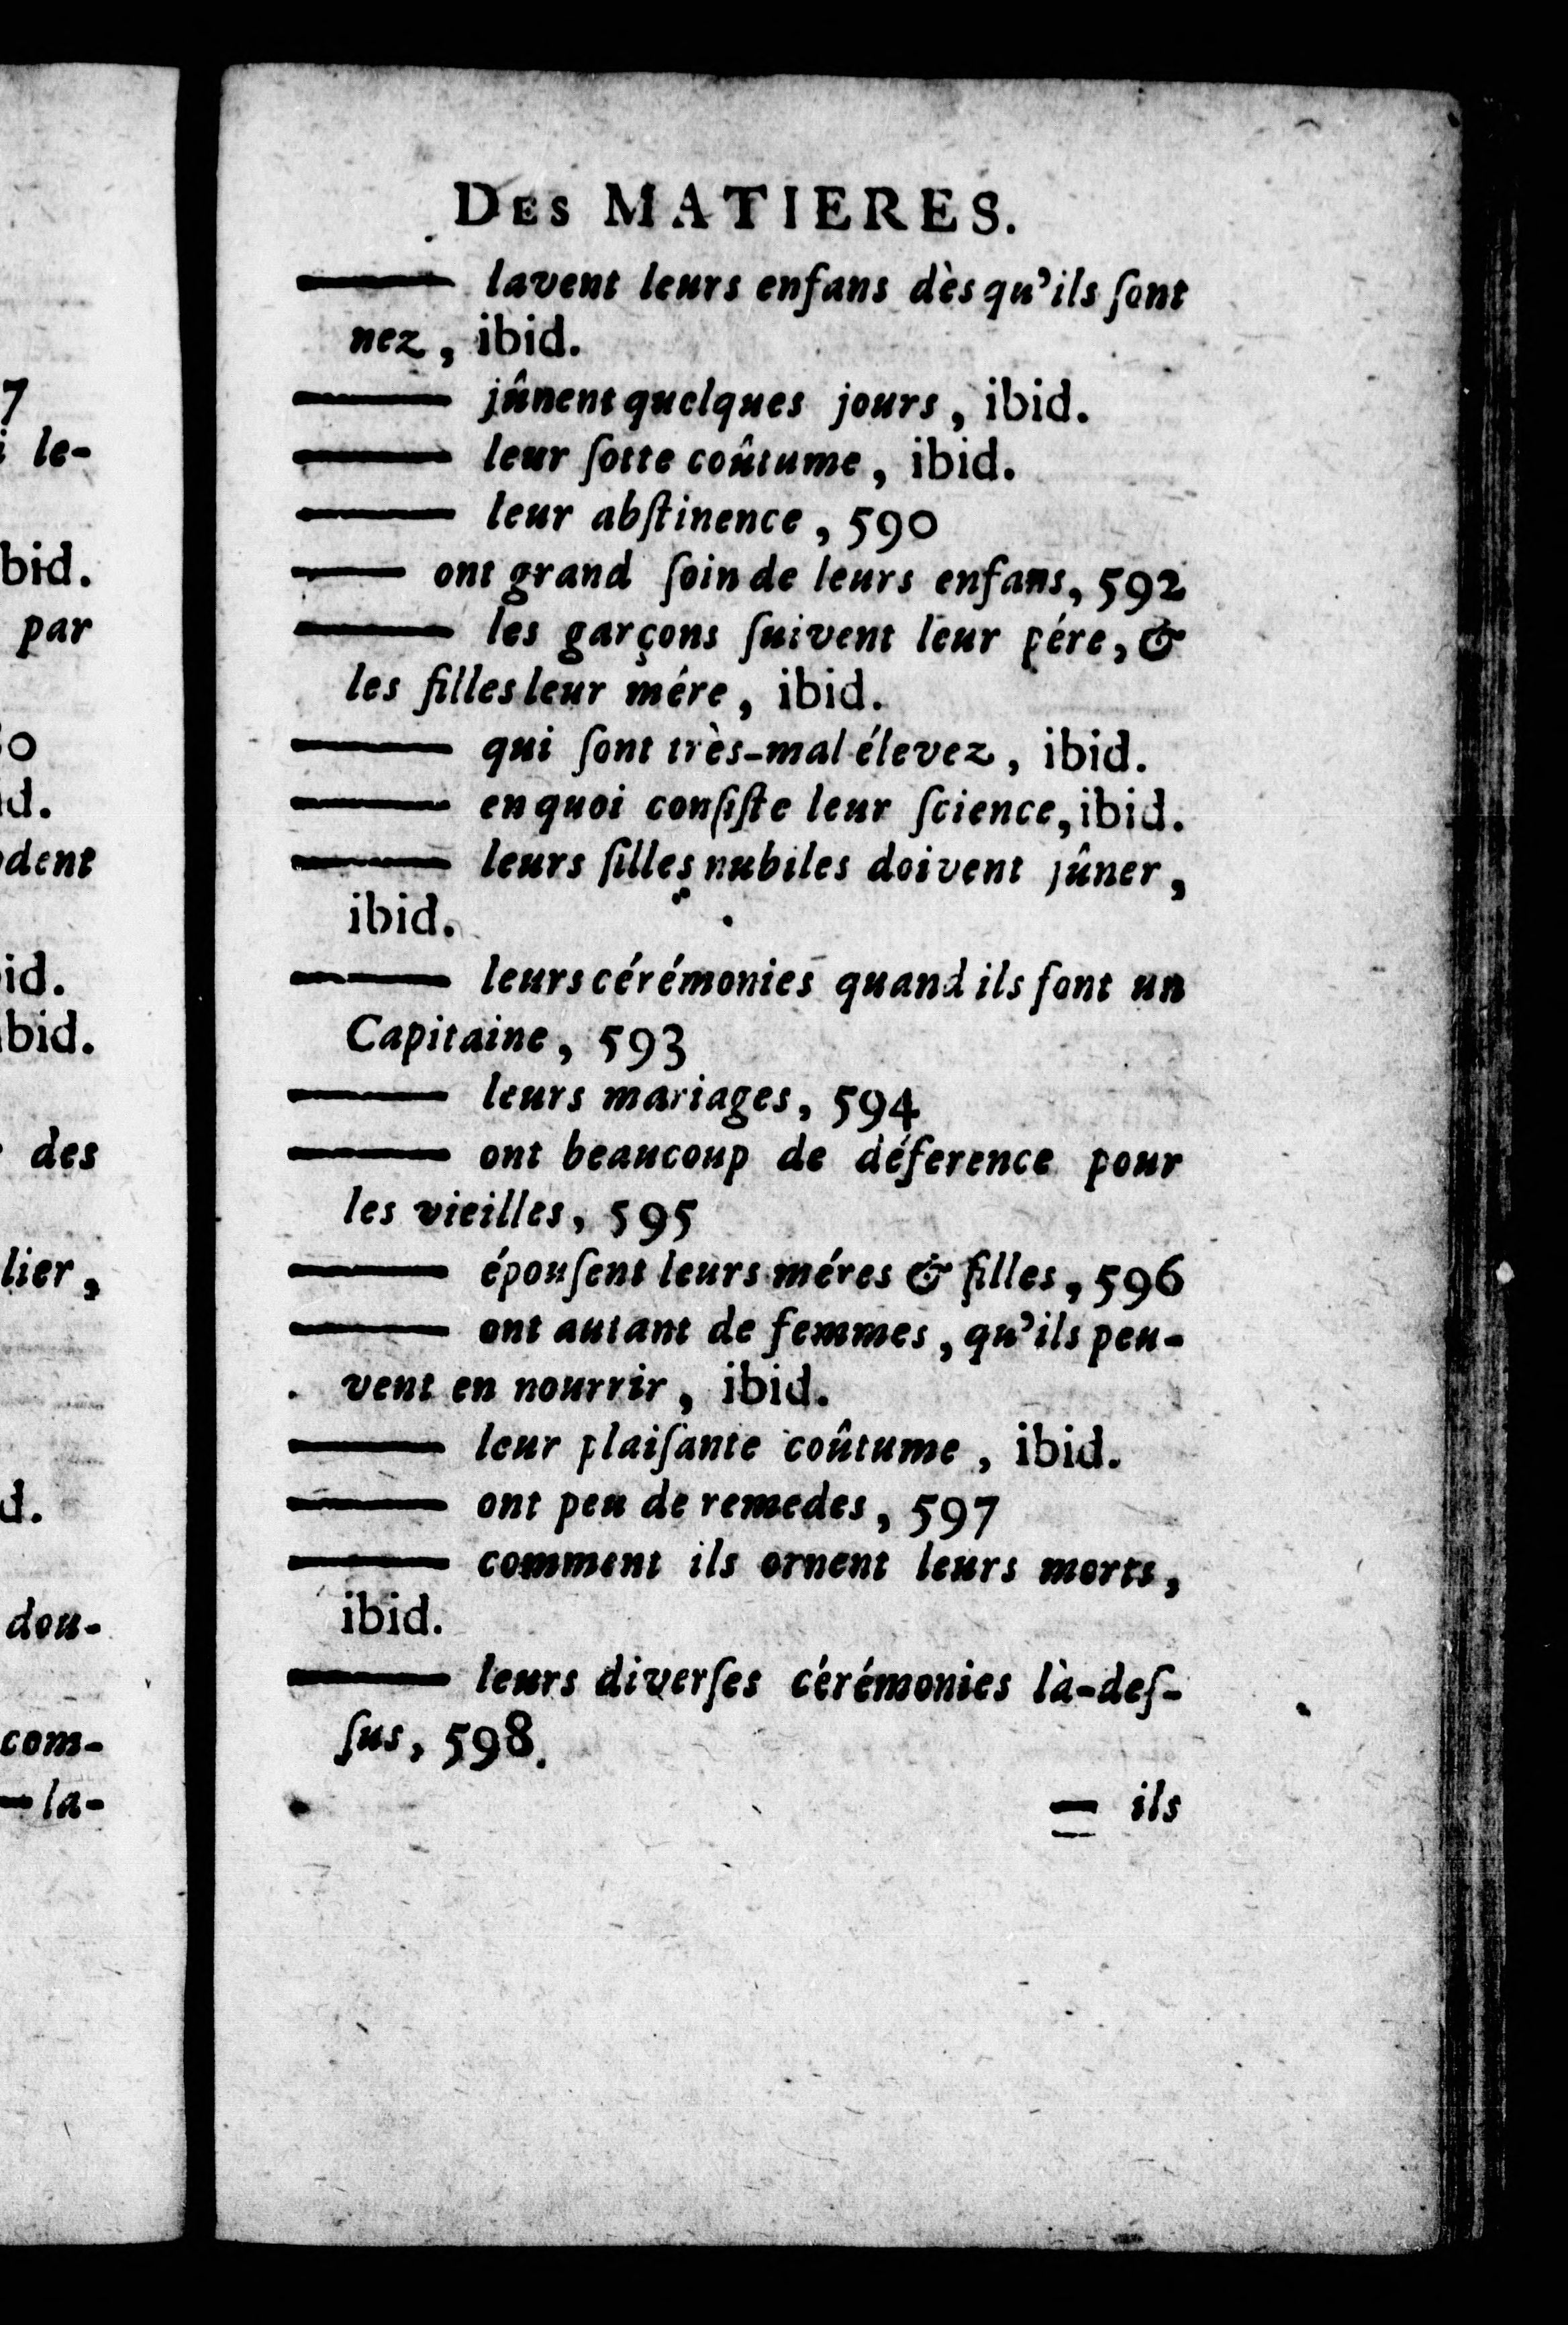 7
le-
bid.
par
o
d.
dent
id.
bid.
des
lier,
d.
dou-
com-
— la-
DES MATIERES.
—— lavent leurs enfans dès qu'ils ſont
nez, ibid.
—— jûnent quelques jours, ibid.
—— leur ſotte coûtume, ibid.
—— leur abſtinence, 590
—— ont grand ſoin de leurs enfans, 592
—— les garçons ſuivent leur pére, &
les filles leur mére, ibid.
—— qui ſont très-mal élevez, ibid.
—— en quoi conſiſte leur ſcience, ibid.
—— leurs filles nubiles doivent jûner,
ibid.
—— leurs cérémonies quand ils font un
Capitaine, 593
—— leurs mariages, 594
—— ont beaucoup de déference pour
les vieilles, 595
—— épouſent leurs méres & filles, 596
—— ont autant de femmes, qu'ils peu-
vent en nourrir, ibid.
—— leur plaiſante coûtume, ibid.
—— ont peu de remedes, 597
—— comment ils ornent leurs morts,
ibid.
—— leurs diverſes cérémonies là-deſ-
ſus, 598.
— ils